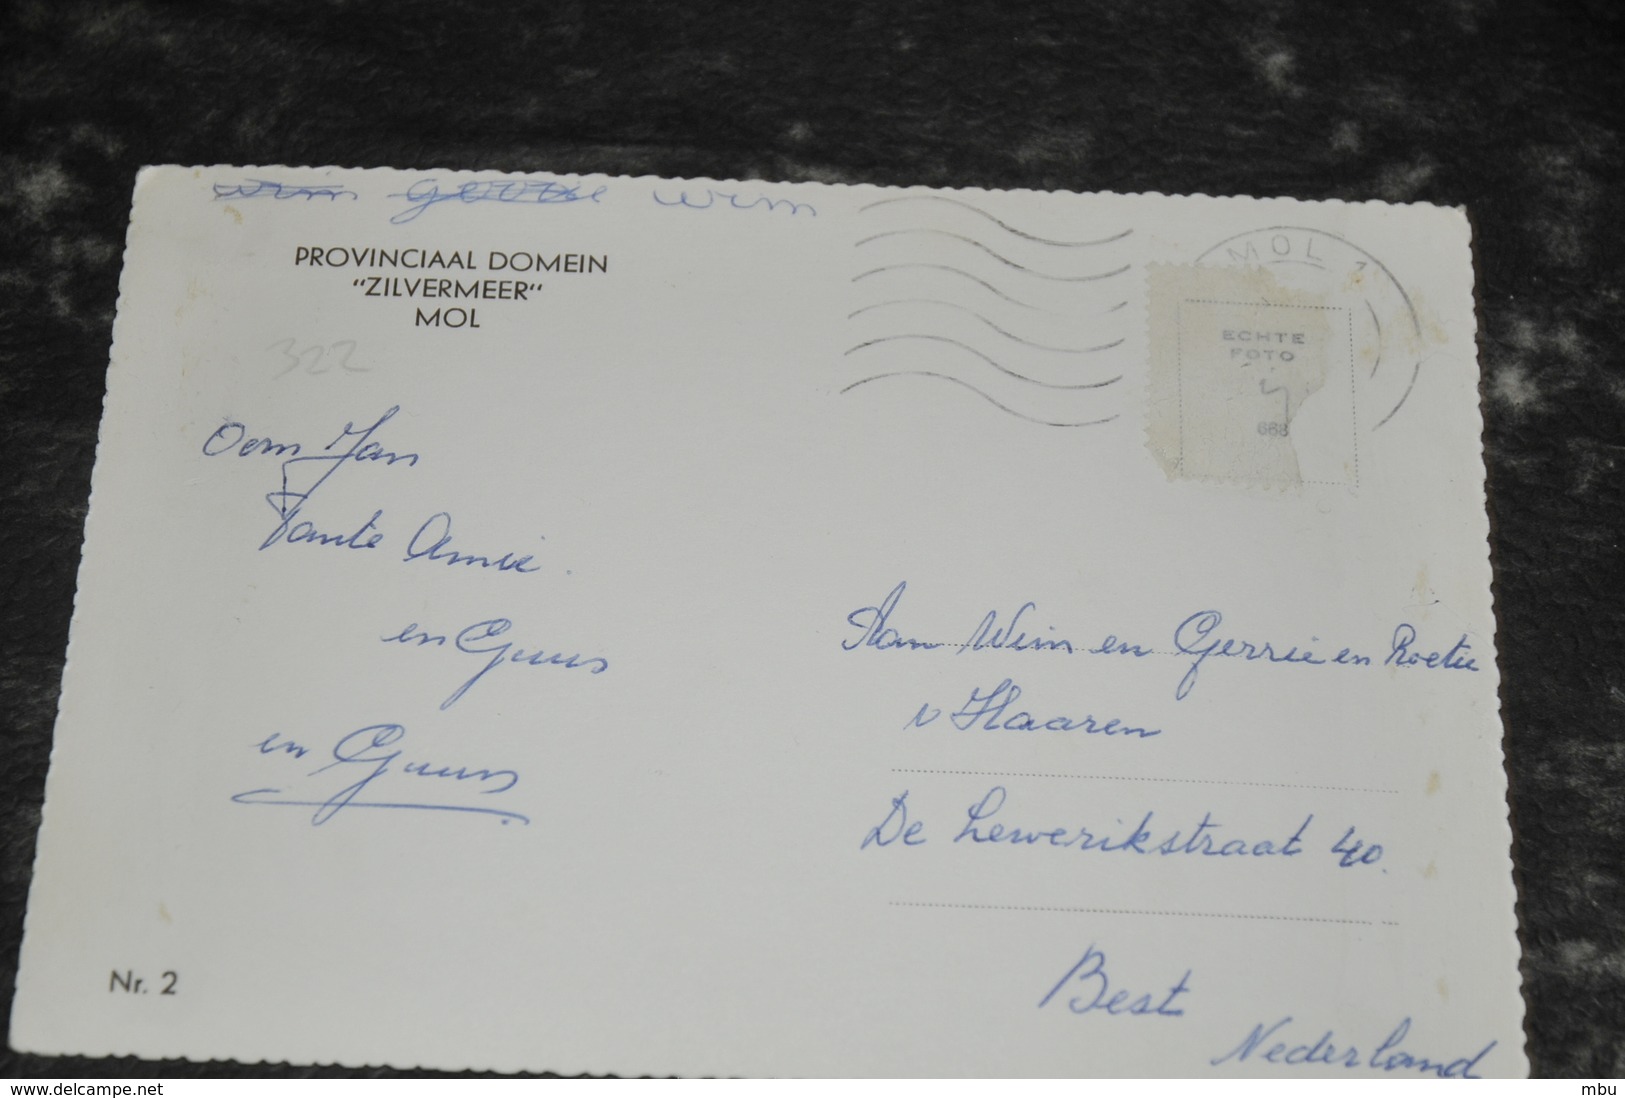 wim wim
PROVINCIAAL DOMEIN
"ZILVERMEER"
MOL
322
Oom Jan
Tante Annie
en Guus
en Guus
Nr. 2
MOL 1
ECHTE
FOTO
668
Aan Wim en Gerrie en Roetie
v Haaren
De Lewerikstraat 40.
Best
Nederland
www.delcampe.net
mbu